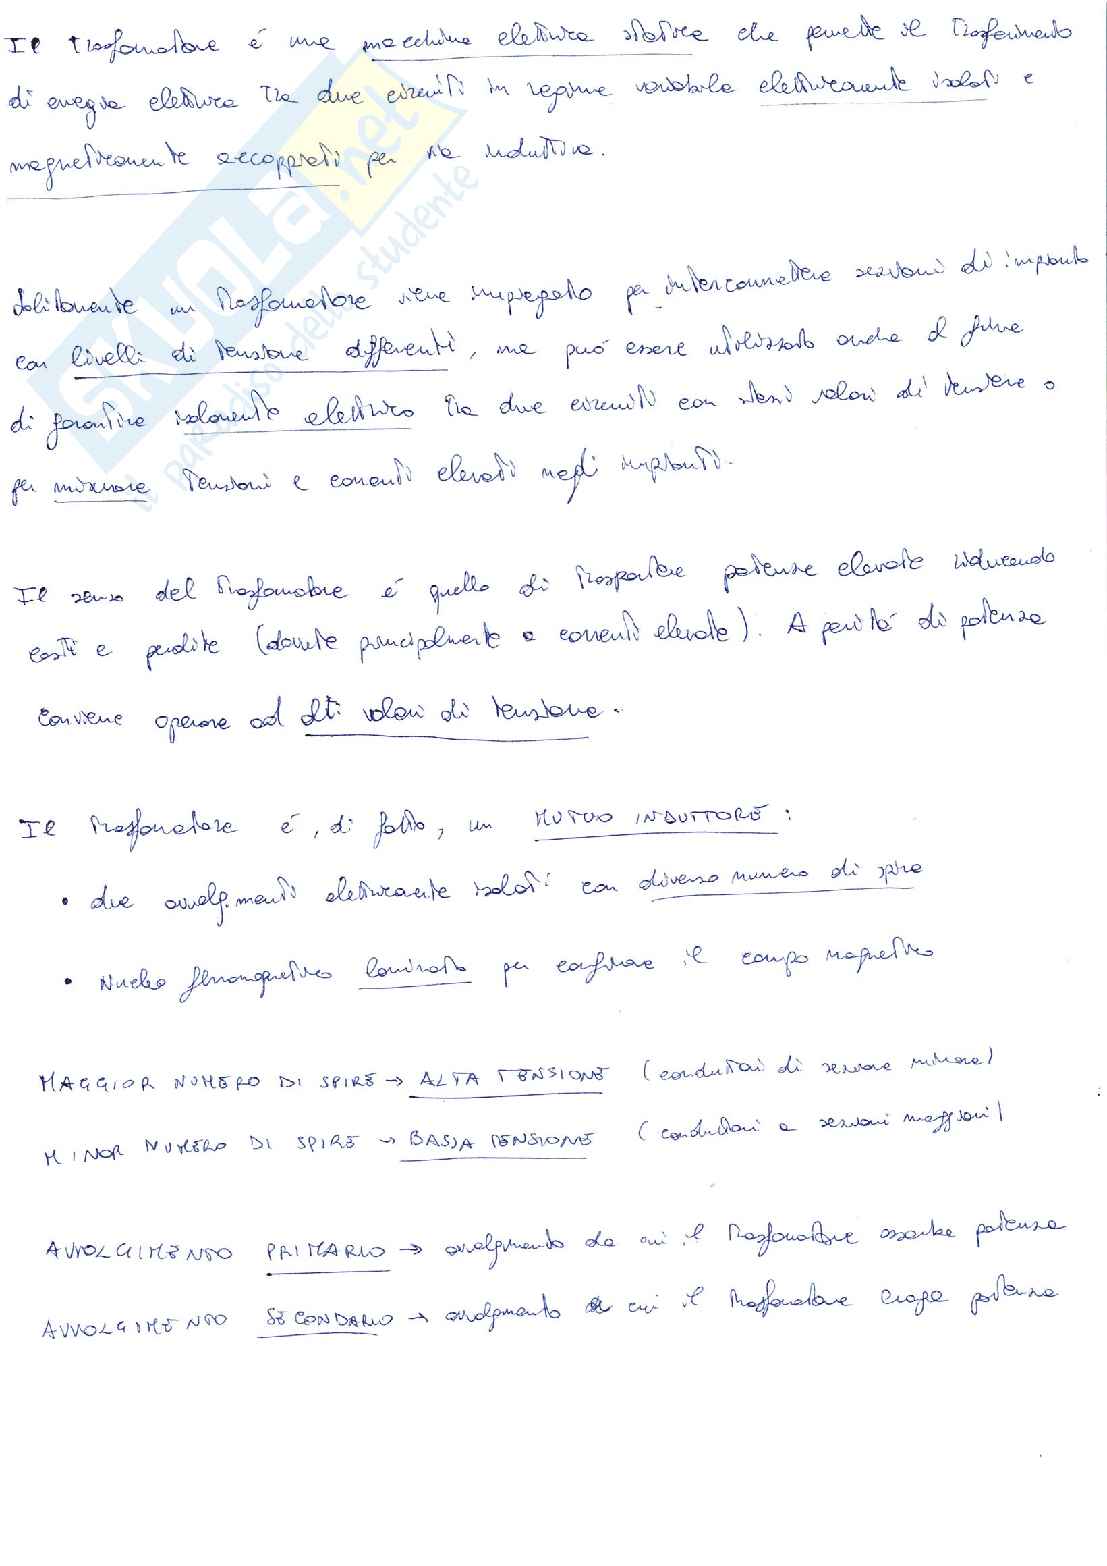 Il trasformatore é una macchina elettrica statica che permette il trasferimento
di energia elettrica tra due circuiti in regime variabile elettricamente isolati e
magneticamente accoppiati per via induttiva.
Solitamente un trasformatore viene impiegato per interconnettere sezioni di impianto
con livelli di tensione differenti, ma può essere utilizzato anche al fine
di garantire isolamento elettrico tra due circuiti con stessi valori di tensione o
per misurare tensioni e correnti elevati negli impianti.
Il senso del trasformatore é quello di trasportare potenze elevate riducendo
costi e perdite (dovute principalmente a correnti elevate). A parità di potenza
conviene operare ad alti valori di tensione.
Il trasformatore é, di fatto, un MUTUO INDUTTORE:
• due avvolgimenti elettricamente isolati con diverso numero di spire
• Nucleo ferromagnetico laminato per confinare il campo magnetico
MAGGIOR NUMERO DI SPIRE → ALTA TENSIONE (conduttori di sezione minore)
MINOR NUMERO DI SPIRE → BASSA TENSIONE (conduttori a sezioni maggiori)
AVVOLGIMENTO PRIMARIO → avvolgimento da cui il trasformatore assorbe potenza
AVVOLGIMENTO SECONDARIO → avvolgimento a cui il trasformatore eroga potenza
SKUOLA.net
il paradiso dello studente